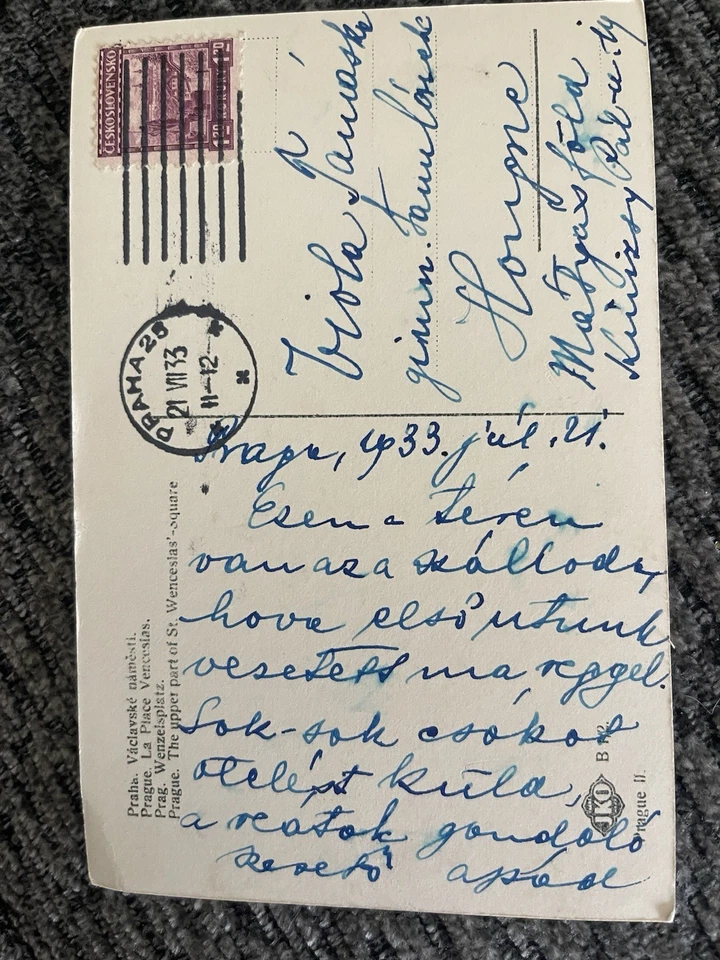 ČESKOSLOVENSKO
1.20
1.20
PRAHA 28
21 VII 33
11-12
Praha. Václavské náměstí.
Prague. La Place Venceslas.
Prag. Wenzelsplatz.
Prague. The upper part of St. Wenceslas'-square
Praga, 1933. júl. 21.
Ezen a téren
van az a szálloda,
hova első utunk
vezetett ma reggel.
Sok-sok csókot
ölelést küld,
a reátok gondoló
szerető apád
Viola Tamáska
gimn. tanulónak
Hongrie
Mátyásföld
Kinizsy Pál-u.
Prague II.